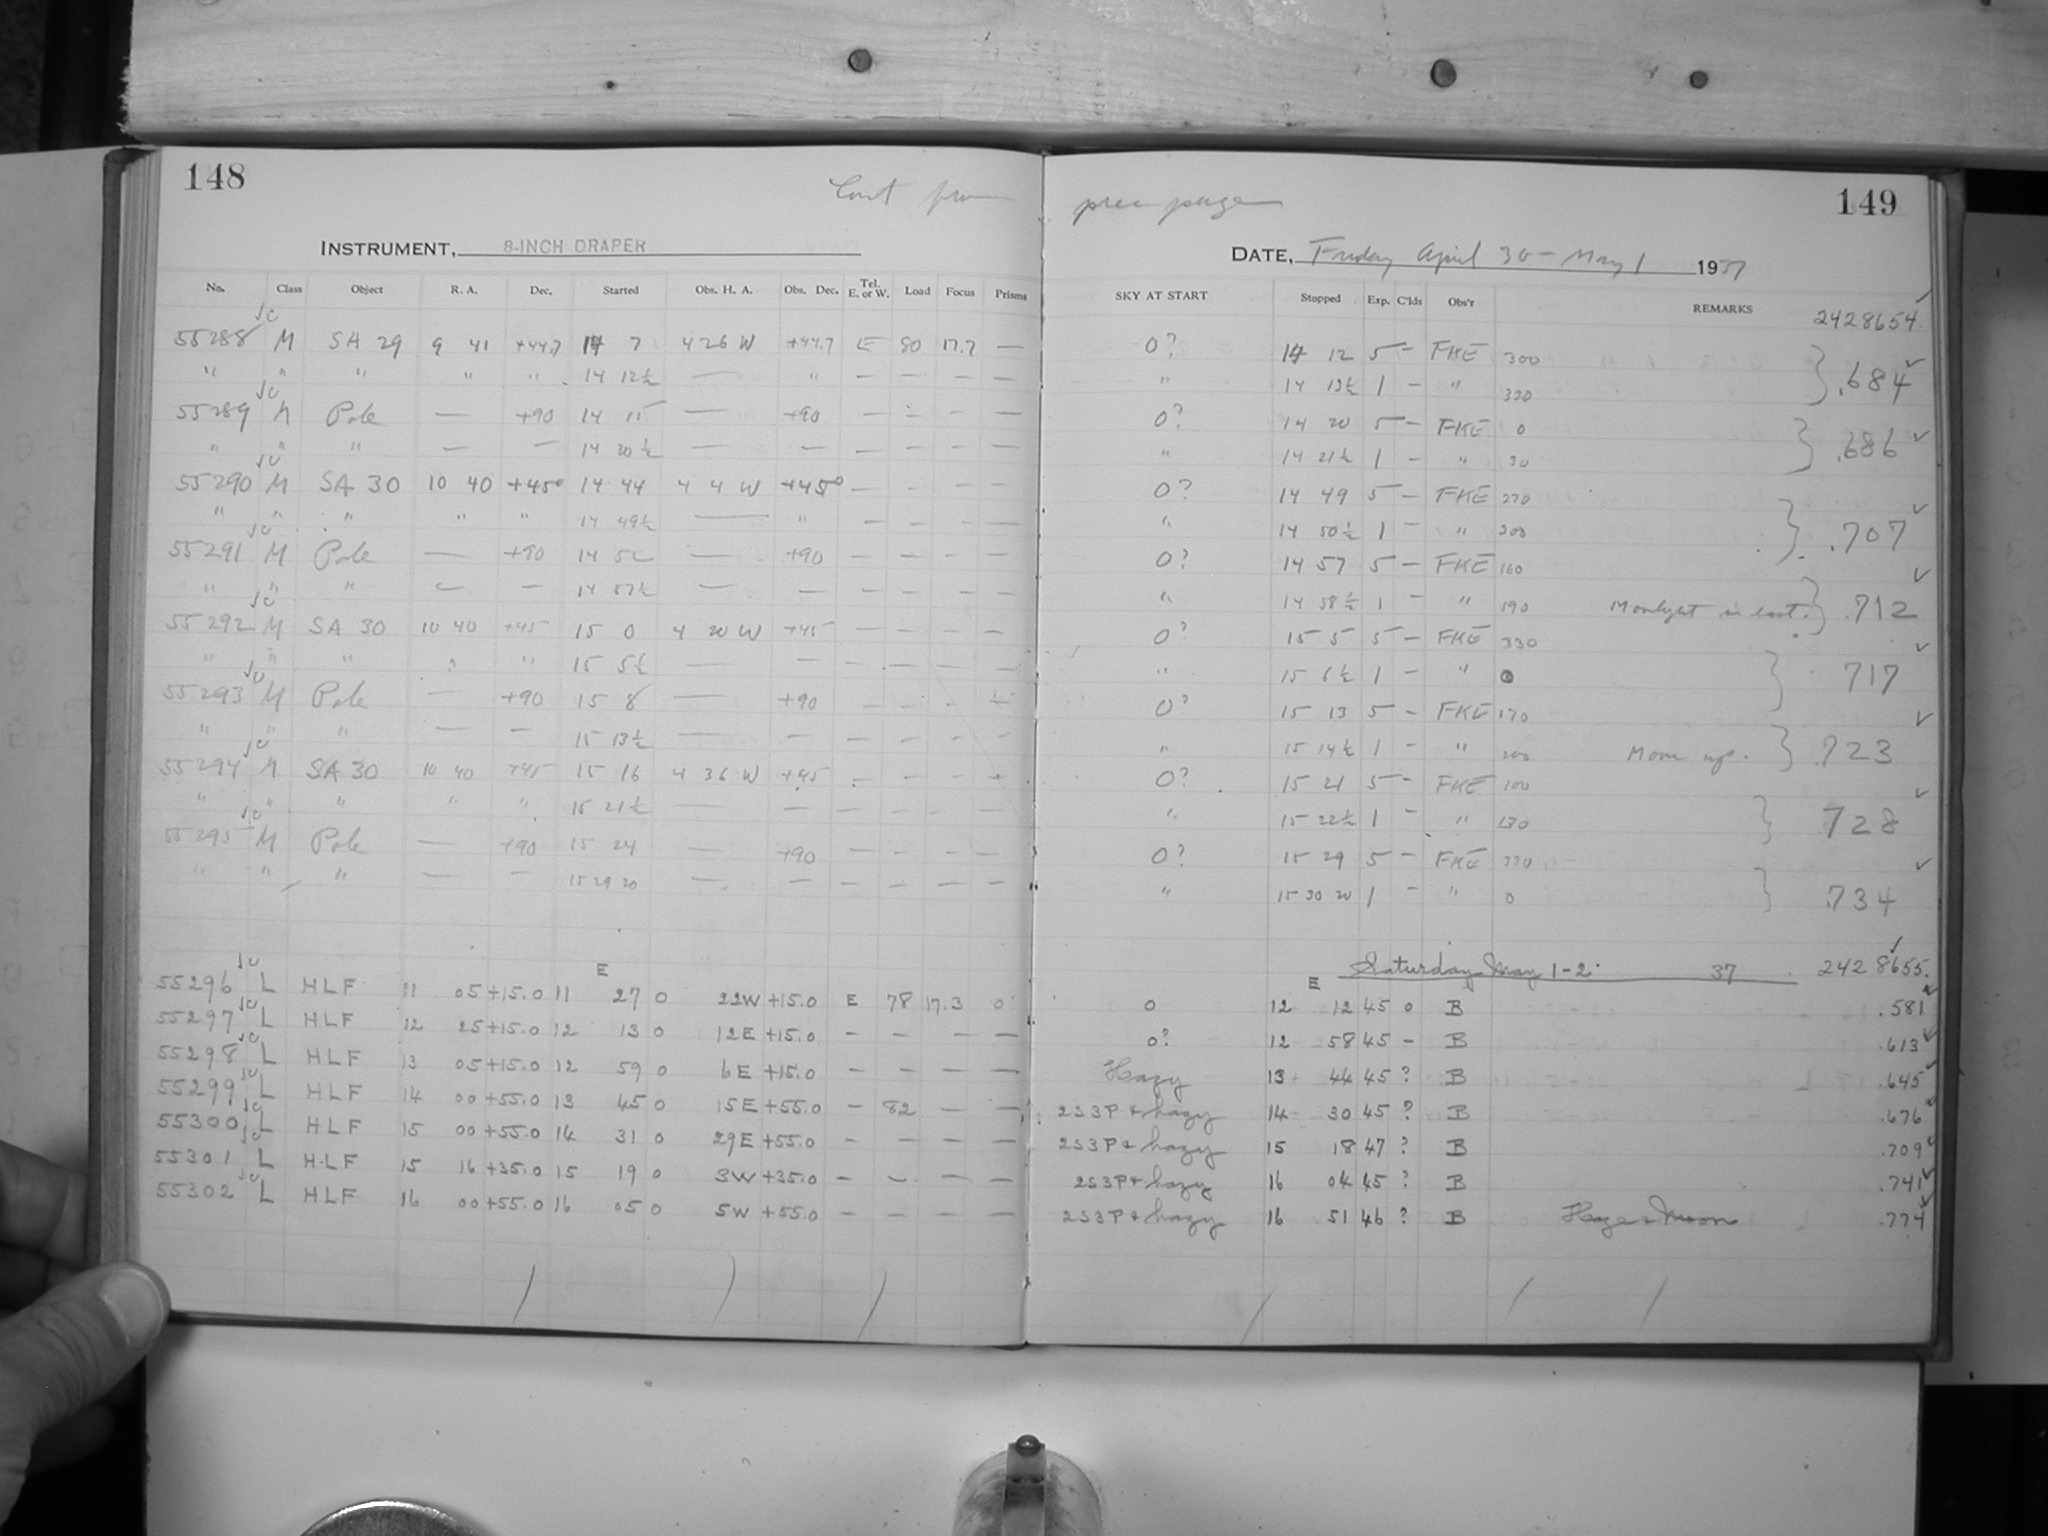 148
149
Cont from prec page
INSTRUMENT, 8-INCH DRAPER
DATE, Friday April 30 - May 1 1937
No. Class Object R. A. Dec. Started Obs. H. A. Obs. Dec. Tel. E. or W. Load Focus Prisms SKY AT START Stopped Exp. C'lds Obs'r REMARKS
2428654
55288 M SA 29 9 41 +44.7 14 7 4 26 W +44.7 E 80 17.7 — 0? 14 12 5 — FKE 300
" " " " " 14 12½ — " — — — — " 14 13½ 1 — " 320 .684
55289 M Pole — +90 14 15 — +90 — — — — 0? 14 20 5 — FKE 0
" " " — — 14 20½ — — — — — — " 14 21½ 1 — " 30 .686
55290 M SA 30 10 40 +45° 14 44 4 4 W +45° — — — — 0? 14 49 5 — FKE 270
" " " " " 14 49½ — " — — — — " 14 50½ 1 — " 300 .707
55291 M Pole — +90 14 52 — +90 — — — — 0? 14 57 5 — FKE 160
" " " — — 14 57½ — — — — — — " 14 58½ 1 — " 190 Moonlight in east. .712
55292 M SA 30 10 40 +45 15 0 4 20 W +45 — — — — 0? 15 5 5 — FKE 330
" " " " " 15 5½ — — — — — — " 15 6½ 1 — " 0 717
55293 M Pole — +90 15 8 — +90 — — — — 0? 15 13 5 — FKE 170
" " " — — 15 13½ — — — — — — " 15 14½ 1 — " 200 Moon up. .723
55294 M SA 30 10 40 +45 15 16 4 36 W +45 — — — — 0? 15 21 5 — FKE 100
" " " " " 15 21½ — — — — — — " 15 22½ 1 — " 130 728
55295 M Pole — +90 15 24 — +90 — — — — 0? 15 29 5 — FKE 330
" " " — — 15 29 20 — — — — — — " 15 30 20 1 — " 0 .734
Saturday May 1-2. 37 2428655.
E E
55296 L HLF 11 05 +15.0 11 27 0 22W +15.0 E 78 17.3 0 0 12 12 45 0 B .581
55297 L HLF 12 25 +15.0 12 13 0 12E +15.0 — — — — 0? 12 58 45 — B .613
55298 L HLF 13 05 +15.0 12 59 0 6E +15.0 — — — — Hazy 13 44 45 ? B .645
55299 L HLF 14 00 +55.0 13 45 0 15E +55.0 — 82 — — 2S3P & hazy 14 30 45 ? B .676
55300 L HLF 15 00 +55.0 14 31 0 29E +55.0 — — — — 2S3P & hazy 15 18 47 ? B .709
55301 L HLF 15 16 +35.0 15 19 0 3W +35.0 — — — — 2S3P & hazy 16 04 45 ? B .741
55302 L HLF 16 00 +55.0 16 05 0 5W +55.0 — — — — 2S3P & hazy 16 51 46 ? B Haze & Moon .774